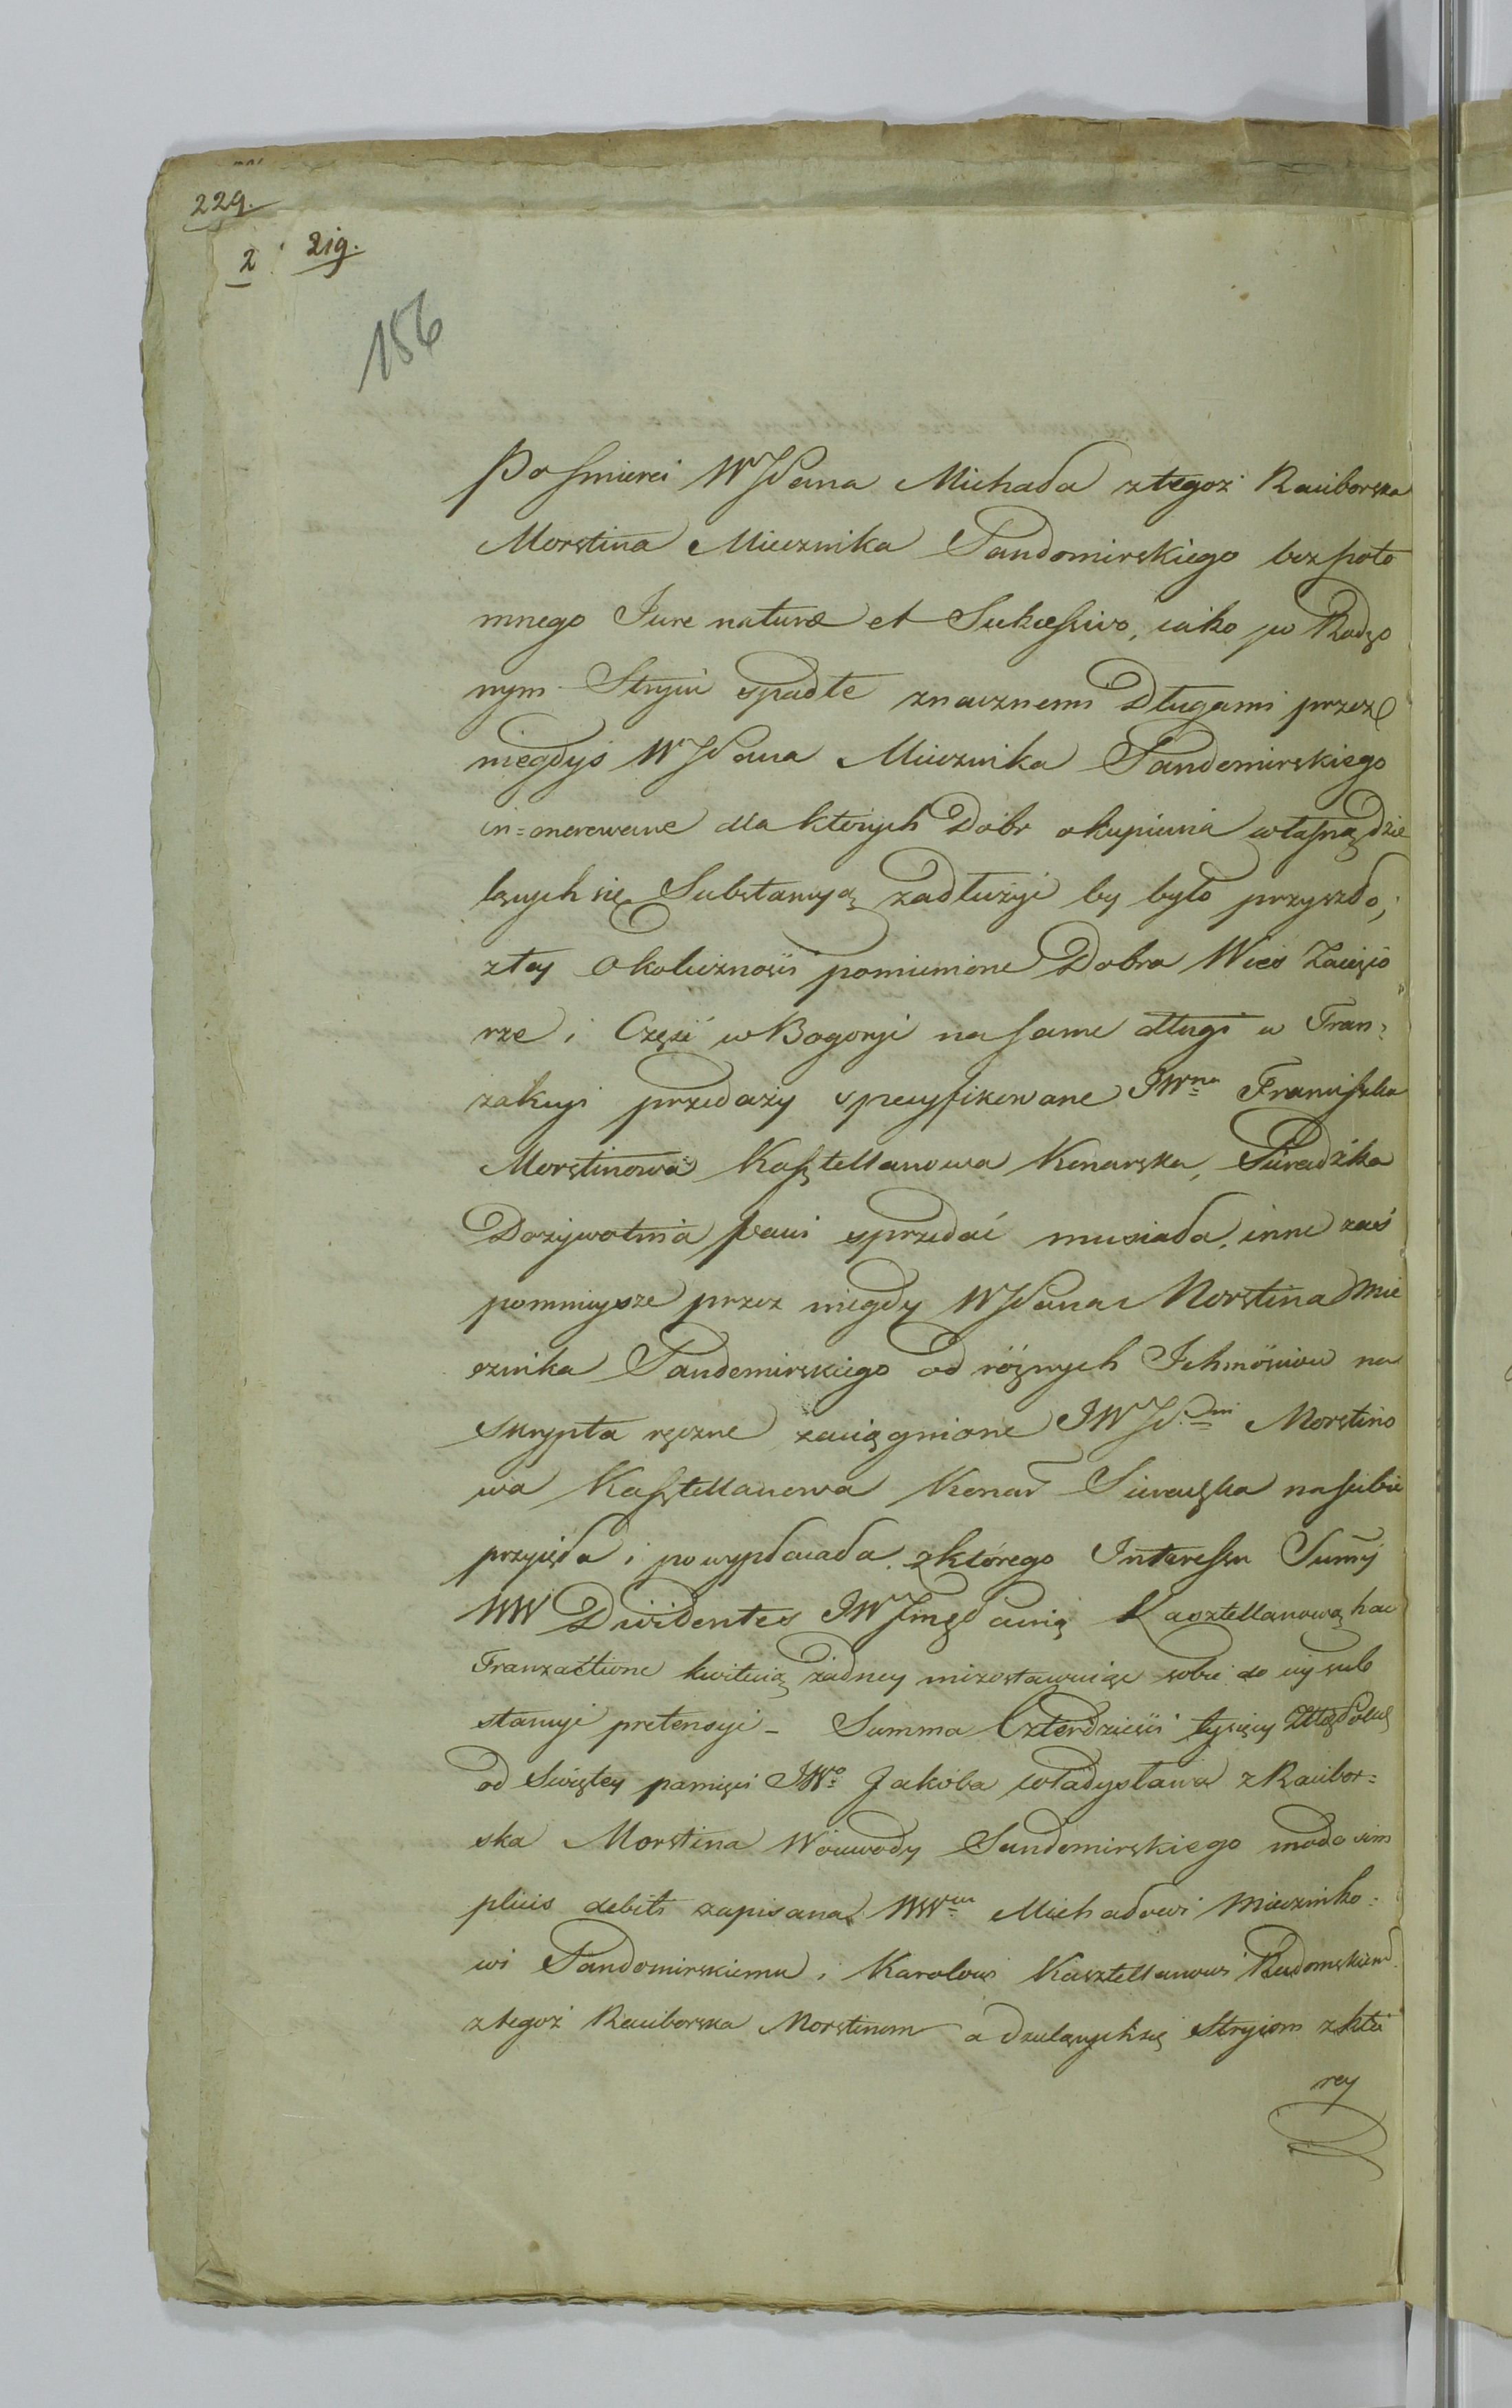 229.
2 219.
156
Po smierci WJPana Michała ztegoz Raciborska
Morstina Miecznika Sandomirskiego bezpoto
mnego Jure naturæ et Sukcessivo, iako po Rodzo
nym Stryiu spadłe znacznemi Długami przez
niegdyś WJPana Miecznika Sandomirskiego
in=onerowane dla których Dóbr okupienia własną dzie
lących się Substancyą zadłużyć by było przyszło,
ztey Okoliczności pomienione Dobra Wieś Zaiezio
rze i Część w Bogoryi na same długi w Tran=
zakcyi przedaży specyfikowane JWna Franciszka
Morstinowa Kasztellanowa Konarska, Siradzka
Dożywotnia Pani sprzedać musiała, inne zaś
pomnieysze przez niegdy WJPana Morstina Mie
cznika Sandomirskiego od różnych Ichmościow na
skrypta ręczne zaciągnione JWJPni Morstino
wa Kasztellanowa Konar Sieradzka na siebie
przyięła i powypłacała, z którego Interessu Summy
WW Dividentes JWJmęPanią Kasztellanową hac
Tranzactione kwituią żadney niezostawuiąc sobie do iey sub
stancyi pretensyi - Summa Czterdzieści tysięcy Złłch Polsch
od Świętey pamięci JWo Jakóba Władysława z Racibor=
ska Morstina Woiewody Sandomirskiego modo sim
plicis debiti zapisana WWm Michałowi Miecziniko=
wi Sandomirskiemu, Karolowi Kasztellanowi Radomskiemu
ztegoż Raciborska Morstinom a dzielących się Stryiom z któ
rey